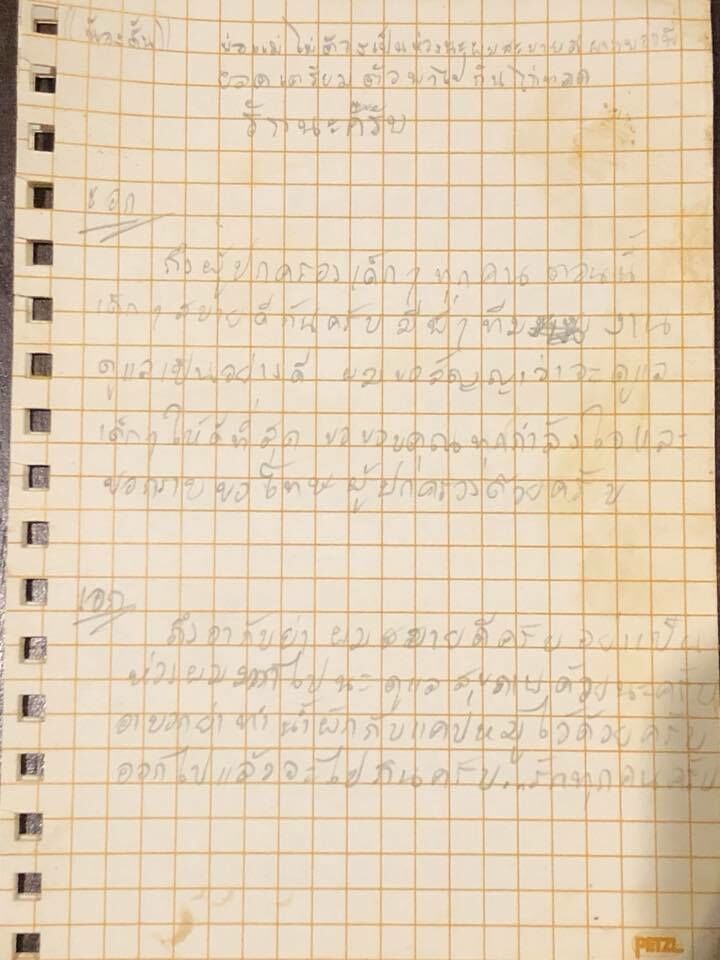 พ่อแม่ ไม่ต้องเป็นห่วงนะผมสบายดี
ยอดเตรียมตัวพาไปกินไก่ทอด
รักนะครับ
เอก
ถึงผู้ปกครองเด็กๆ ทุกคน ตอนนี้
เด็กๆ สบายดีกันครับ มีพี่ๆ ทีม งาน
ดูแลเป็นอย่างดี ผมขอสัญญาว่าจะดูแล
เด็กๆ ให้ดีที่สุด ขอขอบคุณทุกกำลังใจและ
ขอกราบขอโทษผู้ปกครองด้วยครับ
เอก
ถึงอากับย่า ผมสบายดีครับ อย่าเป็น
ห่วงผมมากไปนะ ดูแลสุขภาพด้วยนะครับ
อาบอกย่าทำน้ำผักกับแคปหมูไว้ด้วยครับ
ออกไปแล้วจะไปกินครับ...รักทุกคนครับ
PETZL